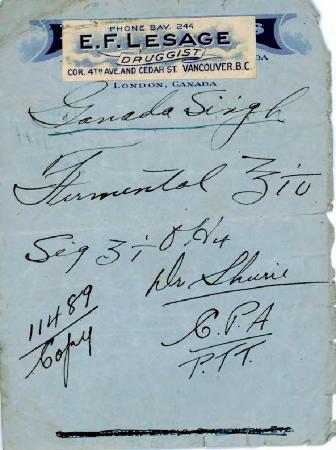 PHONE BAY. 244
E. F. LESAGE
DRUGGIST
COR. 4TH AVE. AND CEDAR ST. VANCOUVER, B.C.
DA
LONDON, CANADA
Ganada Singh
Fermental ℥iv
Sig ʒi 
Dr Shurie
C.P.A
P.T.T.
11489
Copy
STATIONERY, ETC.